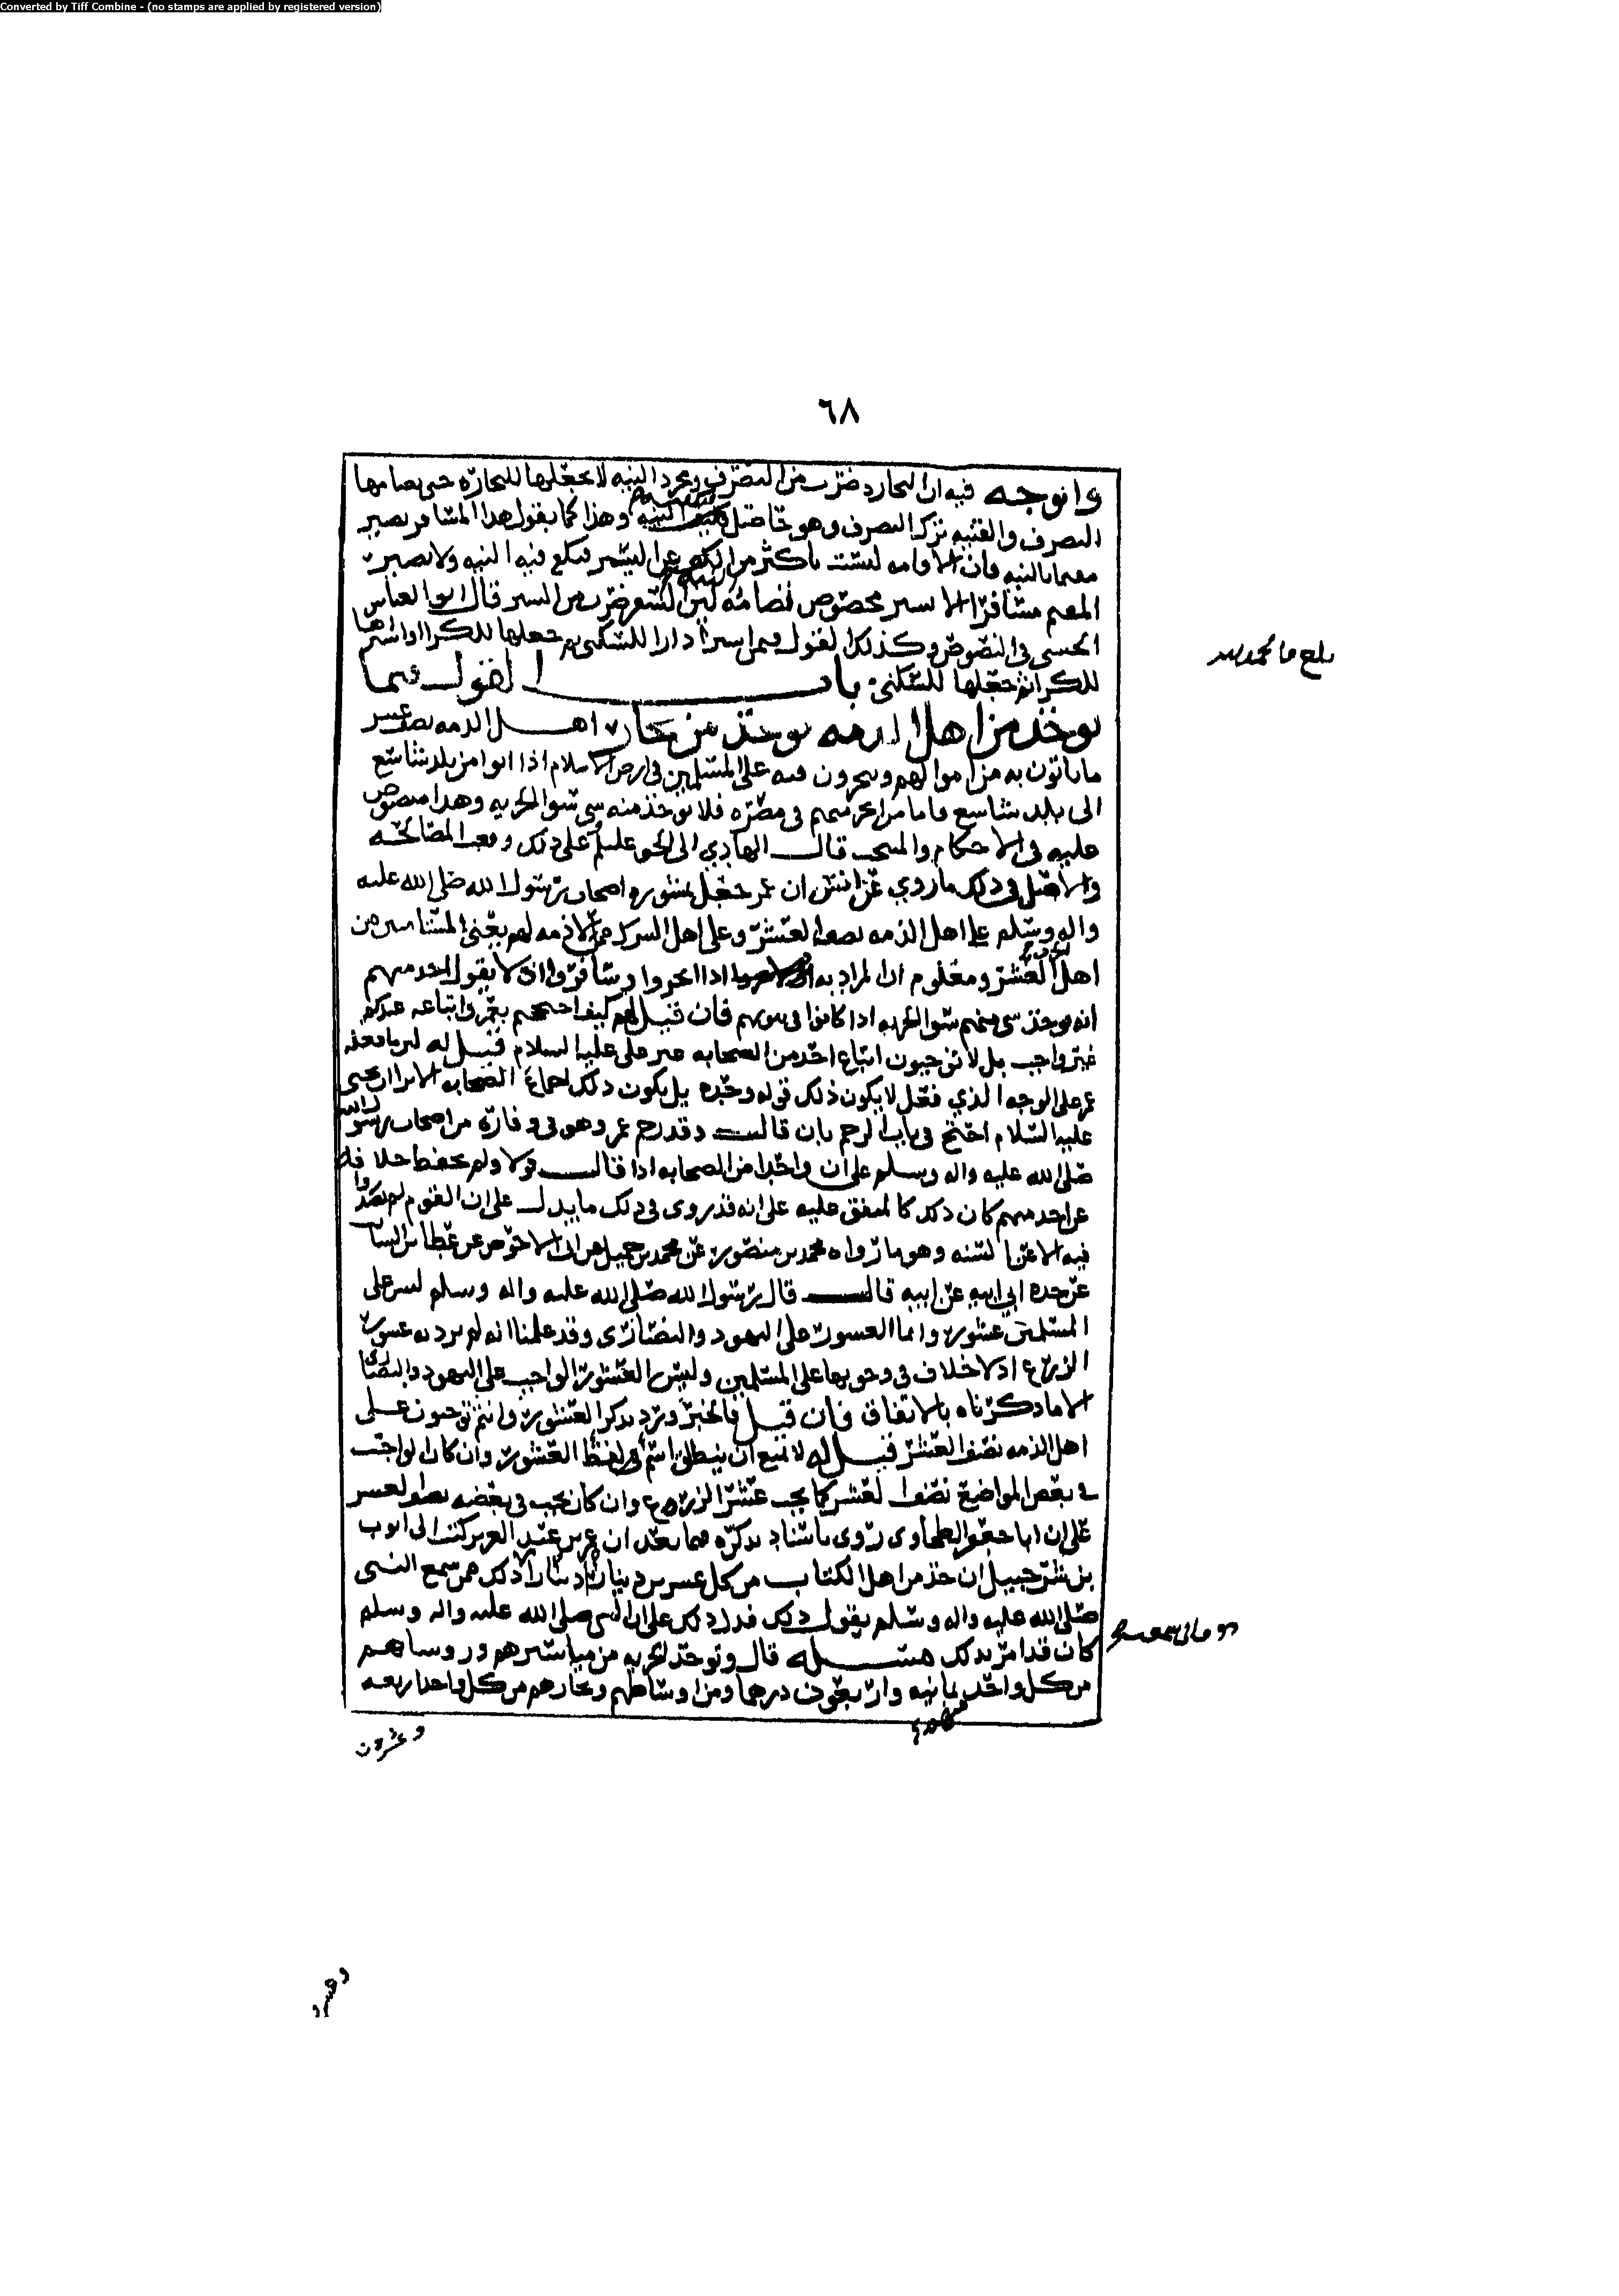 Converted by Tiff Combine - (no stamps are applied by registered version)
٦٨
والوجه فيه ان التجاره ضرب من التصرف ومجرد النيه لا يجعلها للتجاره حتى يضامها
التصرف والقنيه ترك التصرف وهو حاصل وهذا كما يقول هذا المسافر يصير
مقيما بالنيه فان الاقامه ليست باكثر من الكف عن السير فيكفي فيه النيه ولا يصير
المقيم مسافرا الا بسير مخصوص لان السفر ضرب من السير قال ابو العباس
الحسني في النصوص وكذلك القول فيمن اشترا دارا للسكنى ثم جعلها للكرا او اشتراها
للكرا ثم جعلها للسكنى باب القول فيما
يوخذ من اهل الذمه يوخذ من تجار اهل الذمه نصف عشر
ما ياتون به من اموالهم ويتجرون فيه على المسلمين في ارض الاسلام اذا اتوا من بلد شاسع
الى بلد شاسع فاما من اتجر منهم في مصره فلا يوخذ منه شي سوا الجزيه وهذا منصوص
عليه في الاحكام والمنتخب قال الهادي الى الحق عليلم على ذلك وقعت المصالحه
والاصل في ذلك ما روي عن انس ان عمر جعل بمشوره اصحاب رسول الله صلى الله عليه
واله وسلم على اهل الذمه نصف العشر وعلى اهل الشرك ممن لا ذمه لهم يعني المستامنين من
اهل العشر ومعلوم ان المراد به اذا اتجروا وسافروا لانه لا يقول احد منهم
انه يوخذ شي منهم سوا الجزيه اذا كانوا في بيوتهم فان قيل لهم كيف احتججتم بعمر واتباعه عندكم
غير واجب بل لا توجبون اتباع احد من الصحابه غير علي عليه السلام قيل له لان ما فعله
عمر على الوجه الذي فعل لا يكون ذلك قوله وحده بل يكون ذلك اجماع الصحابه الا ترا ان يحيى
عليه السلام احتج في باب الرجم بان قال وقد رجم عمر وهو في وفارة من اصحاب رسول الله
صلى الله عليه واله وسلم على ان واحدا من الصحابه اذا قال قولا ولم يحفظ خلافه
عن احد منهم كان ذلك كالمتفق عليه على انه قد روي في ذلك ما يدل على ان القوم لم يصدروا
فيه الا عن السنه وهو ما رواه محمد بن منصور عن محمد بن جميل عن ابي الاحوص عن عطا بن السائب
عن جده ابي ابيه عن ابيه قال قال رسول الله صلى الله عليه واله وسلم ليس على
المسلمين عشور وانما العشور على اليهود والنصارى وقد علمنا انه لم يرد به عشور
الزرع اذ لا خلاف في وجوبها على المسلمين وليس العشور الواجب على اليهود والنصارى
الا ما ذكرناه بالاتفاق فان قيل فالخبر ورد بذكر العشور وانتم توجبون على
اهل الذمه نصف العشر قيل له لا يمتنع ان ينطلق اسم لفظ العشور وان كان الواجب
في بعض المواضع نصف العشر كما يجب عشر الزرع وان كان يجب في بعضه نصف العشر
على ان ابا جعفر الطحاوي روى باسناد يذكره فيما بعد ان عمر بن عبد العزيز كتب الى ايوب
بن شرحبيل ان خذ من اهل الكتاب من كل عشرين دينارا دينارا ذلك ممن سمع النبي
صلى الله عليه واله وسلم يقول ذلك فدل ذلك على ان النبي صلى الله عليه واله وسلم
كان قد امر بذلك مسئله قال وتوخذ الجزيه من مياسيرهم وروسائهم
من كل واحد ثمانيه واربعون درهما ومن اوساطهم وتجارهم من كل واحد اربعه
وعشرون